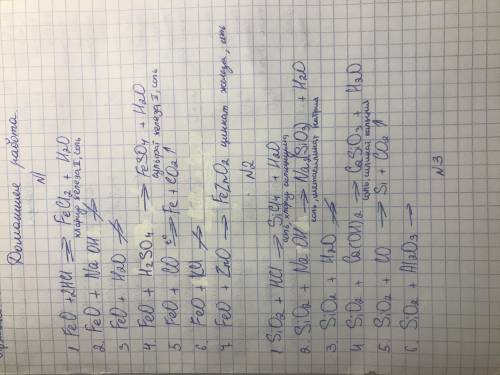 Домашнее работа.
N1
1. FeO + 2HCl ⇒ FeCl2 + H2O
хлорид железа II, соль
2. FeO + NaOH ↛
3. FeO + H2O ↛
4. FeO + H2SO4 → FeSO4 + H2O
сульфат железа II, соль
5. FeO + CO t°→ Fe + CO2↑
6. FeO + KCl ↛
7. FeO + ZnO → FeZnO2 цинкат железа, соль
N2
1. SiO2 + HCl ⇒ SiCl4 + H2O
соль, хлорид
2. SiO2 + NaOH → Na2SiO3 + H2O
соль, метасиликат натрия
3. SiO2 + H2O ↛
4. SiO2 + Ca(OH)2 → CaSiO3 + H2O
соль силикат кальция
5. SiO2 + CO → Si + CO2↑
6. SiO2 + Al2O3 →
N3